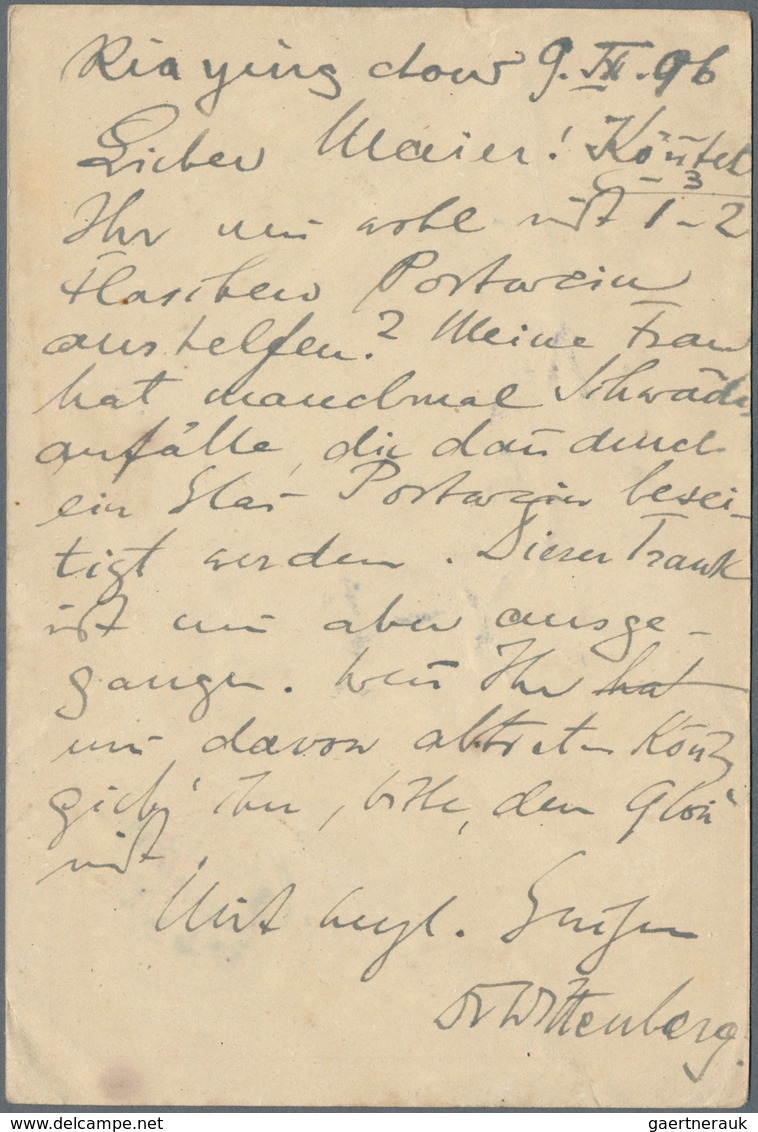 Kia ying chow 9. IX. 96
Lieber Maier! Kön̄tet
Ihr mir wohl mit 1-2
-3
Flaschen Portwein
aushelfen? Meine Frau
hat manchmal Schwäche
anfälle, die dan̄ durch
ein Glas Portwein besei-
tigt werden. Dieser Trank
ist mir aber ausge-
gangen. Wen̄ Ihr hat
mir davon abtreten kön̄t,
gieb' ihn, bitte, den
mit
Mit herzl. Grüßen
Dr Wittenberg.
DELCAMPE.NET
gaertnerauk